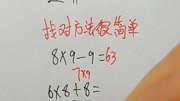 找对方法很简单
8×9-9=63
7×9
6×8+8=